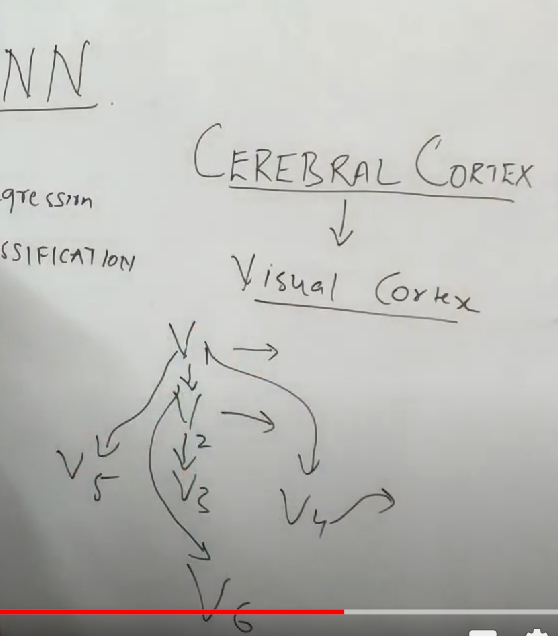 NN
gression
SSIFICATION
CEREBRAL CORTEX
Visual Cortex
V1
V2
V3
V4
V5
V6